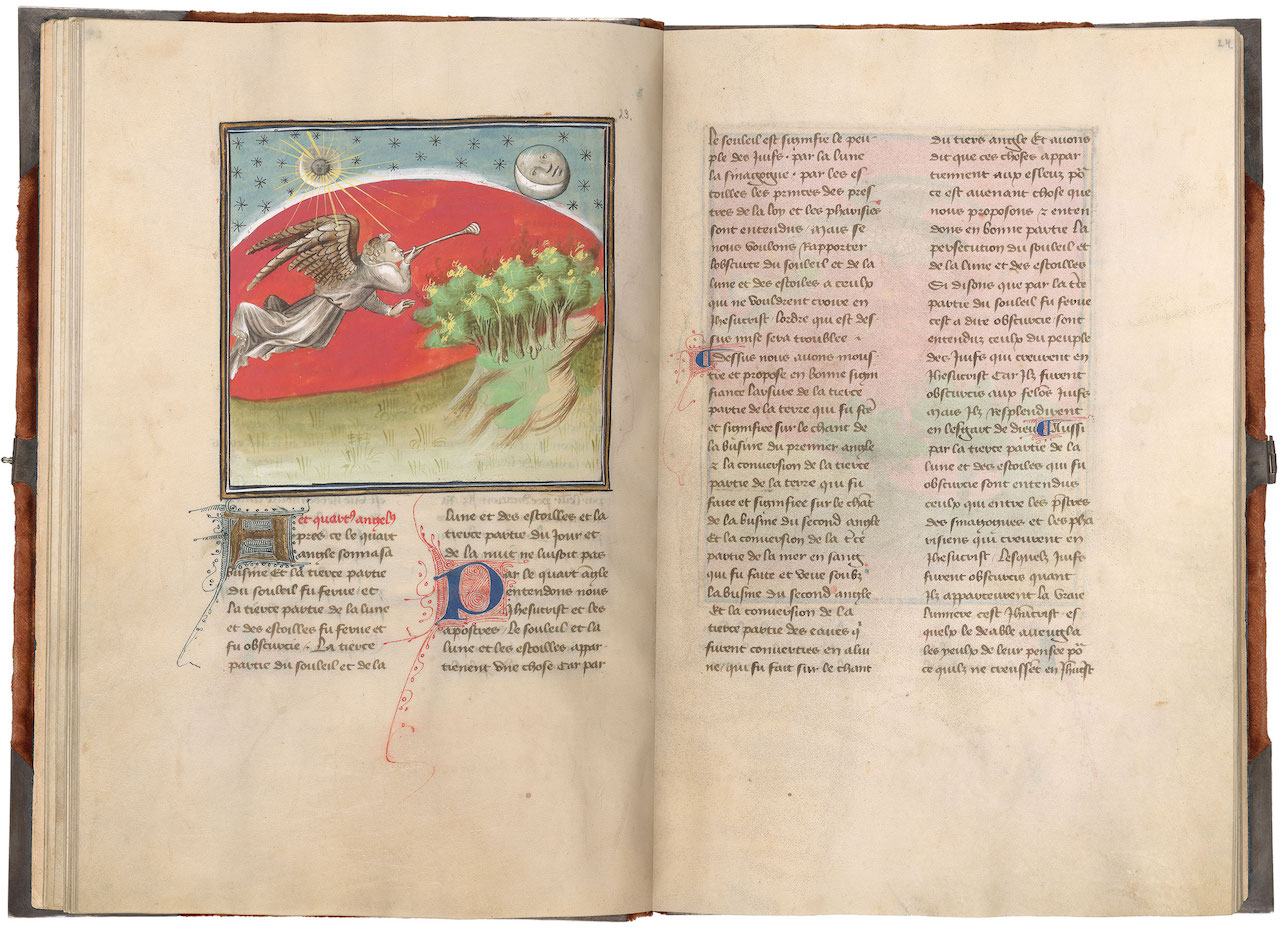 23.
et quart9 angel9
Apres ce le quart
angle sonna sa
busine Et la tierce partie
du souleil fu ferue / et
la tierce partie de la lune
et des estoilles fu ferue et
fu obscurcie . La tierce
partie du souleil et de la
lune et des estoilles et la
tierce partie du Jour et
de la nuit ne luisoit pas
Par le quart āgle
entendons nous
Jhesucrist et les
apostres . Le souleil et la
lune et les estoilles appar-
tiēnent vne chose Car par
24.
le souleil est signifie le peu-
ple des Juifs . par la lune
la sinagogue . par les es
toilles les princes des pres
tres de la loy et les pharisies
sont entendus . Mais se
nous voulons Rapporter
lobscurte du souleil et de la
lune et des estoiles a ceulx
qui ne vouldrent croire en
Jhesucrist / lordre qui est des
sus mise sera troublee .
Dessus nous auons mous
tre et propose en bonne signi
fiance larsure de la tierce
partie de la terre qui fu fte
et signifiee sur le chant de
la busine du premier angle
z la conuersion de la tierce
partie de la terre qui fu
faite et signifiee sur le chāt
de la busine du second angle
Et la conuersion de la tˢce
partie de la mer en sang
qui fu faite et veue soubz
la busine du second angle
Et la conuersion de la
tierce partie des eaues q̄
furent conuerties en aluy
ne / qui fu fait sur le chant
du tiers angle Et auons
dit que ces choses appar
tiennent aux esleuz po᷑
ce est auenant chose que
nous proposons z enten
dons en bonne partie La
persecution du souleil et
de la lune et des estoilles
Si disons que par la tˢce
partie du souleil fu ferue
cest a dire obscurcie / sont
entenduz ceulx du peuple
des Juifs qui creurent en
Jhesucrist Car Ilz furent
obscurcis aux felōs Juifs
Mais Ilz Resplendirent
en lesgart de dieu Aussi
par la tierce partie de la
lune et des estoiles qui fu
obscurcie sont entendus
ceulx qui entre les p̄stres
des sinagogues et les pha
risiens qui creurent en
Jhesucrist . Lesquelz Juifs
furent obscurcis quant
Ilz apparceurent la vraie
lumiere cest Jhūcrist es
quelx le deable aueugla
les yeulx de leur pensee po᷑
ce quilz ne creussēt en Jhūcst